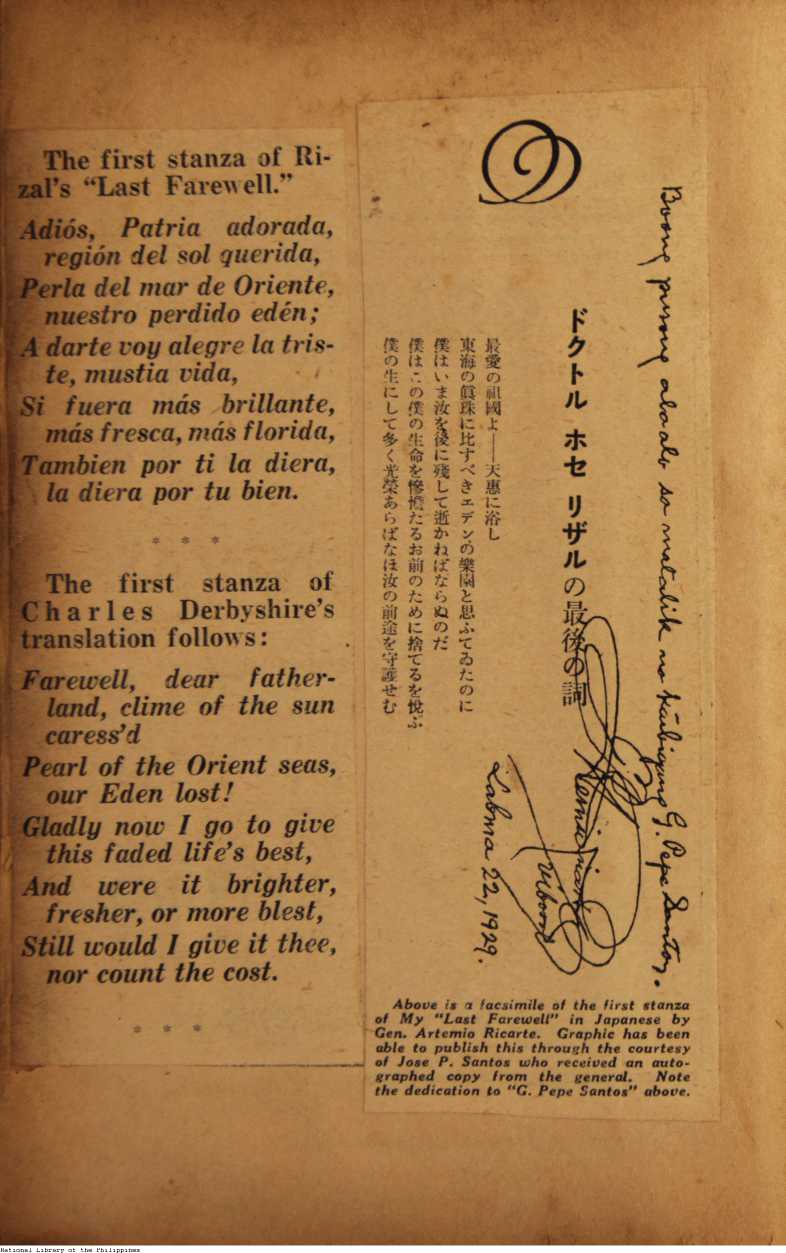 The first stanza of Ri-
zal's "Last Farewell."
Adiós, Patria adorada,
región del sol querida,
Perla del mar de Oriente,
nuestro perdido edén;
A darte voy alegre la tris-
te, mustia vida,
Si fuera más brillante,
más fresca, más florida,
Tambien por ti la diera,
la diera por tu bien.
* * *
The first stanza of
Charles Derbyshire's
translation follows:
Farewell, dear father-
land, clime of the sun
caress'd
Pearl of the Orient seas,
our Eden lost!
Gladly now I go to give
this faded life's best,
And were it brighter,
fresher, or more blest,
Still would I give it thee,
nor count the cost.
* * *
Boong pusong alaala sa matalik na kaibigang G. Pepe Santos.
ドクトル ホセ リザルの最後の詞
最愛の祖國よ──天惠に浴し
東海の眞珠に比すべきエデンの樂園と思ふてゐたのに
僕はいま汝を後に殘して逝かねばならぬのだ
僕はこの僕の生命を慘憺たるお前のために捨てるを悅ぶ
僕の生にして多く光榮あらばなほ汝の前途を守護せむ
22, 1929.
Above is a facsimile of the first stanza
of My "Last Farewell" in Japanese by
Gen. Artemio Ricarte. Graphic has been
able to publish this through the courtesy
of Jose P. Santos who received an auto-
graphed copy from the general. Note
the dedication to "G. Pepe Santos" above.
National Library of the Philippines